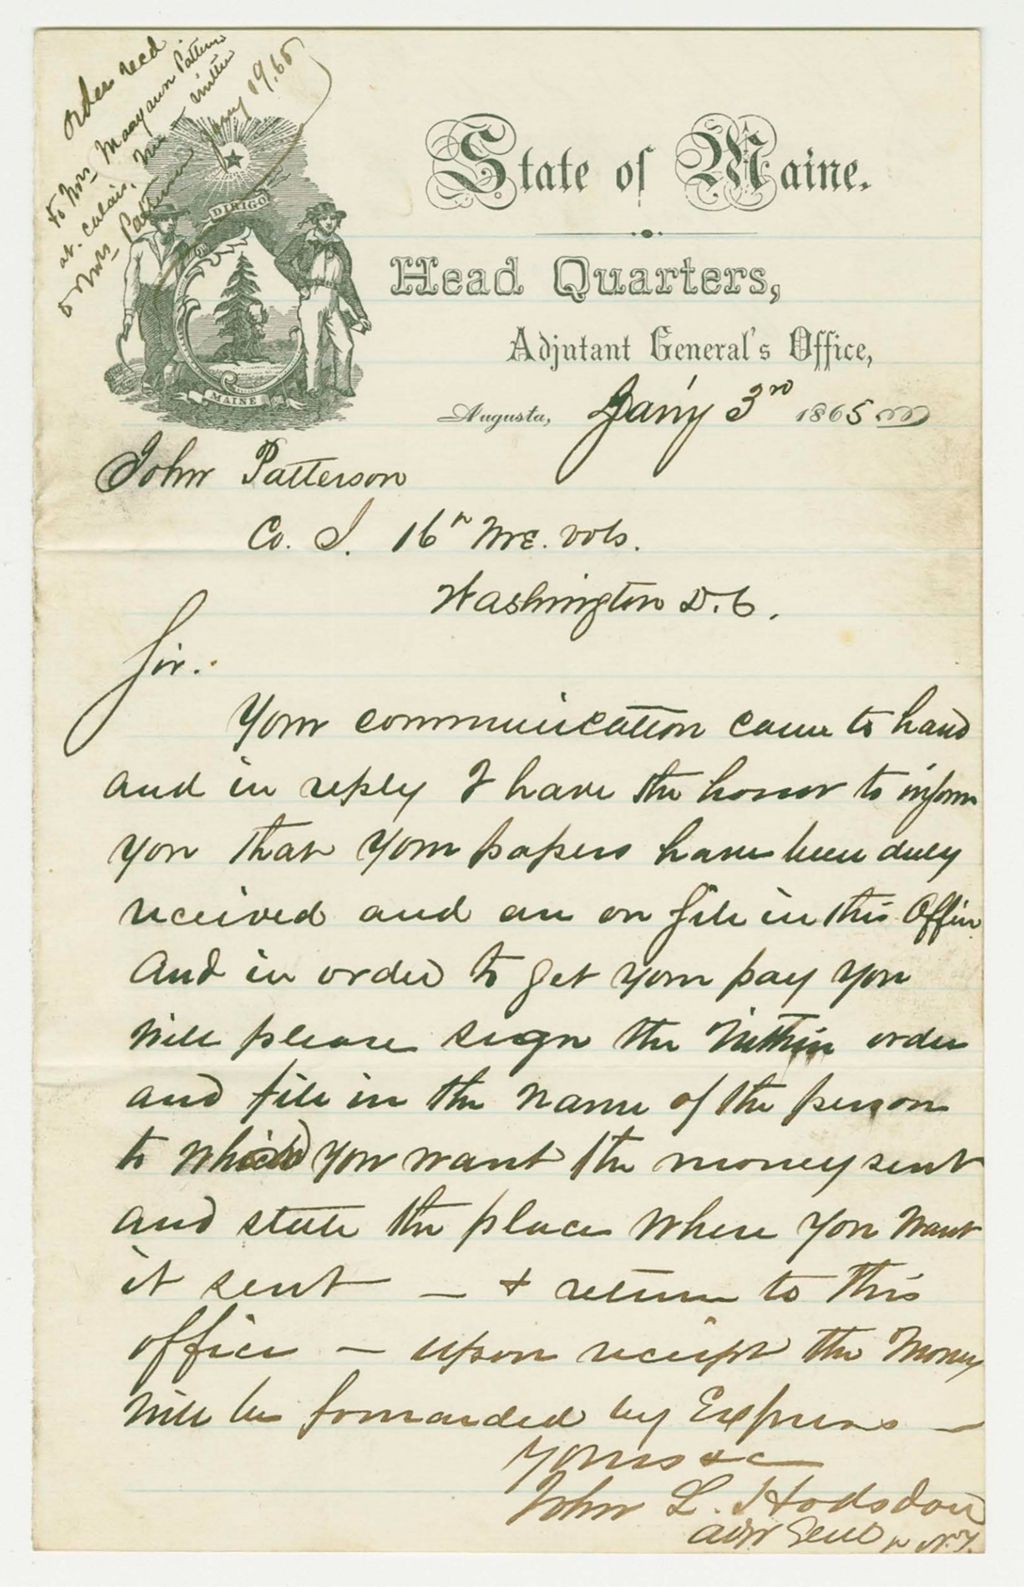 order recd
to Mrs Maryann Patterson
at. Calais, Me - written
to Mrs Patterson Jany 19. 65
DIRIGO
MAINE
State of Maine.
Head Quarters,
Adjutant General's Office,
Augusta, Jan'y 3rd 1865
John Patterson
Co. I. 16th Me. vols.
Washington D.C.
Sir.
Your communication came to hand
and in reply I have the honor to inform
you that your papers have been duly
received and are on file in this Office.
And in order to get your pay you
will please sign the within order
and fill in the name of the person
to which you want the money sent
and state the place where you want
it sent — & return to this
office — upon receipt the money
will be forwarded by Express —
Yours &c
John L. Hodsdon
Adjt Genl